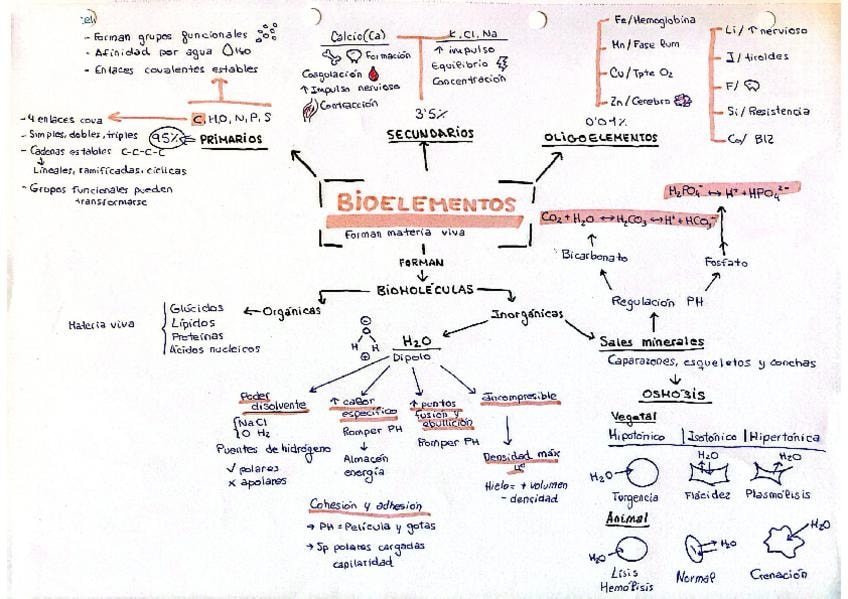 - Forman grupos funcionales
- Afinidad por agua H2O
- Enlaces covalentes estables
C, H, O, N, P, S
95% PRIMARIOS
- 4 enlaces cova
- Simples, dobles, triples
- Cadenas estables C-C-C-C
Lineales, ramificadas, cíclicas
- Grupos funcionales pueden
transformarse
Calcio (Ca)
Formación
Coagulación
↑ Impulso nervioso
Contracción
K, Cl, Na
↑ impulso
Equilibrio
Concentración
3'5%
SECUNDARIOS
Fe/Hemoglobina
Mn/Fase lum
Cu/Tpte O2
Zn/Cerebro
0'04%
OLIGOELEMENTOS
Li/↑ nervioso
I/tiroides
F/
Si/Resistencia
Co/B12
BIOELEMENTOS
Forman materia viva
FORMAN
BIOMOLÉCULAS
Orgánicas
Glúcidos
Lípidos
Proteínas
Ácidos nucleicos
Materia viva
Inorgánicas
H2O
Dipolo
H H
Poder
disolvente
NaCl
O H2
Puentes de hidrógeno
✓ polares
x apolares
↑ calor
específico
Romper PH
↓
Almacén
energía
↑ puntos
fusión y
ebullición
Romper PH
Incompresible
Densidad máx
4º
Hielo = + volumen
- densidad
Cohesión y adhesión
→ PH = Película y gotas
→ Sp polares cargadas
capilaridad
H2PO4- ↔ H+ + HPO4 2-
CO2 + H2O ↔ H2CO3 ↔ H+ + HCO3-
Bicarbonato
Fosfato
Regulación PH
Sales minerales
Caparazones, esqueletos y conchas
OSMOSIS
Vegetal
Hipotónico | Isotónico | Hipertónica
H2O H2O H2O
Turgencia Flacidez Plasmólisis
Animal
H2O H2O H2O
Lisis Normal Crenación
Hemólisis